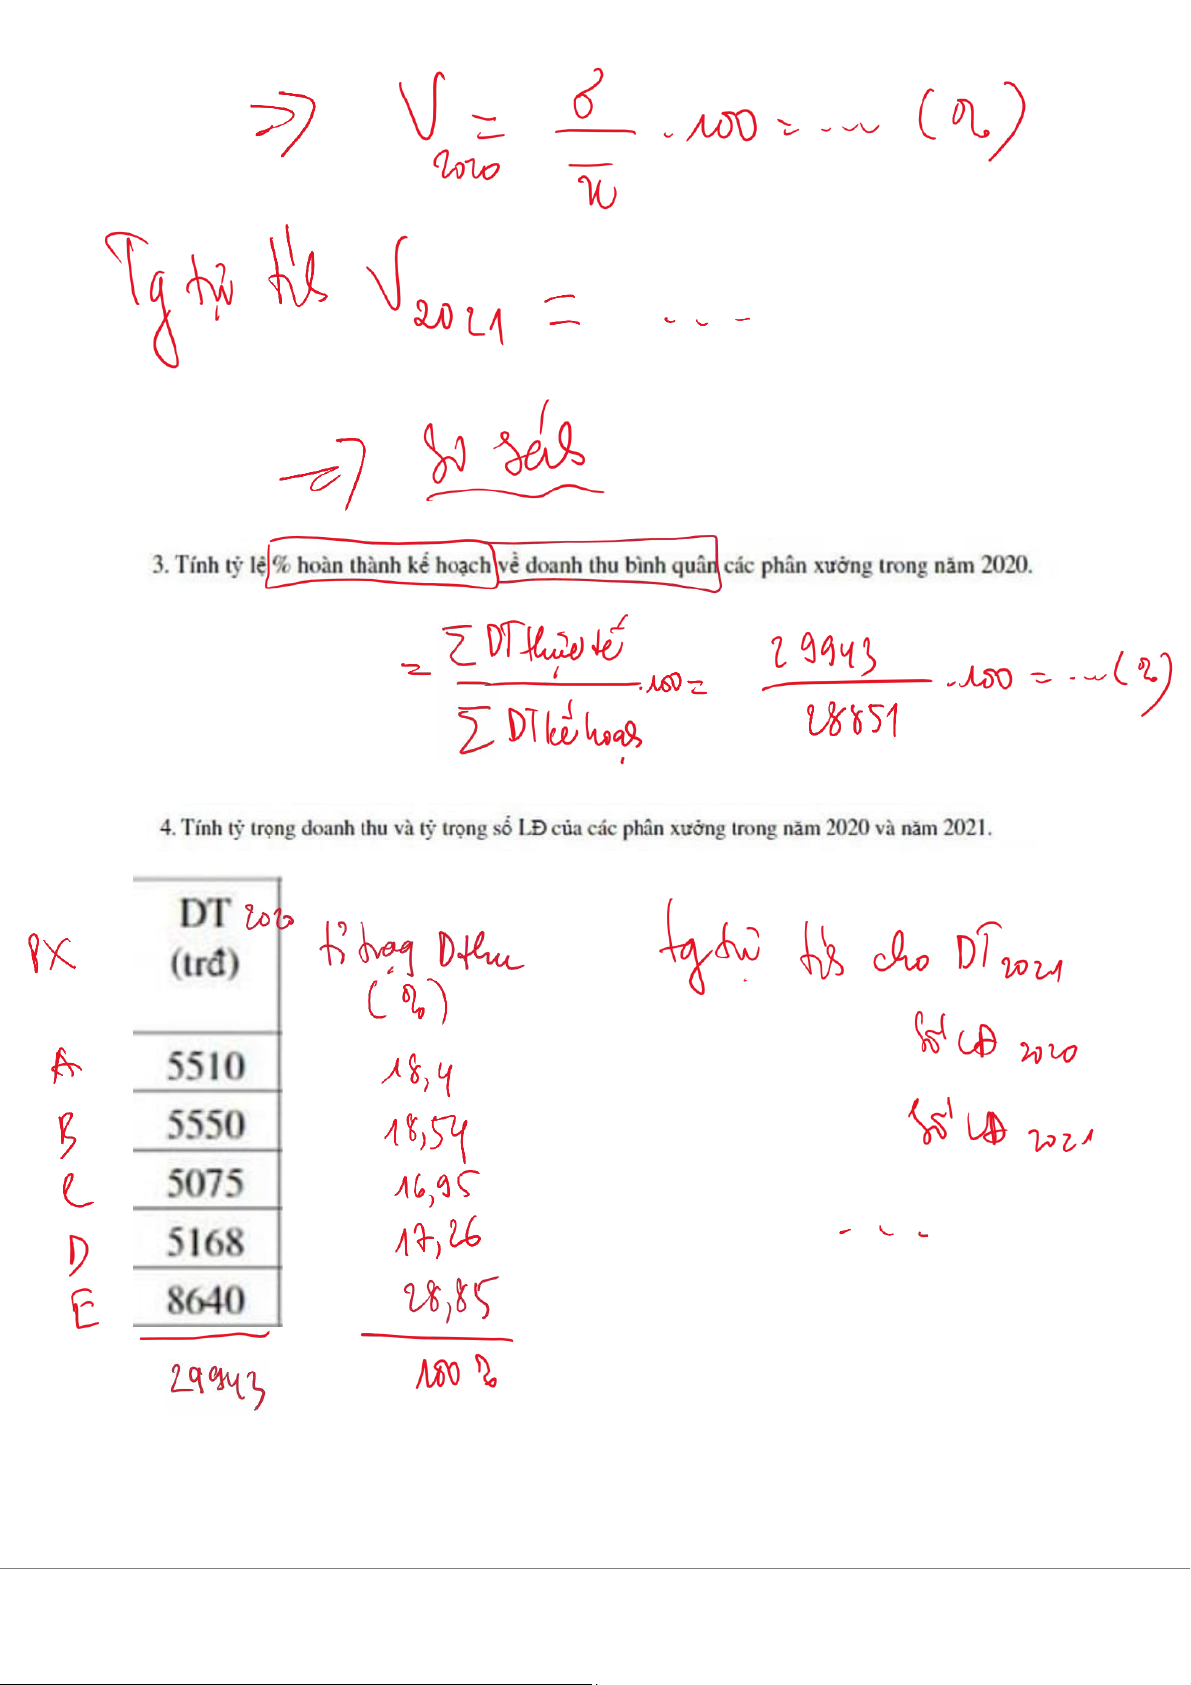 => V2020 = σ/x̄ . 100 = ... (%)
Tg tự tính V2021 = ...
=> So sánh
3. Tính tỷ lệ % hoàn thành kế hoạch về doanh thu bình quân các phân xưởng trong năm 2020.
= Σ DT thực tế / Σ DT kế hoạch . 100 = 29943 / 28851 . 100 = ... (%)
4. Tính tỷ trọng doanh thu và tỷ trọng số LĐ của các phân xưởng trong năm 2020 và năm 2021.
PX DT 2020 (trđ) tỉ trọng Dthu (%)
tg tự tính cho DT 2021
Số LĐ 2020
Số LĐ 2021
...
A 5510 18,4
B 5550 18,54
C 5075 16,95
D 5168 17,26
E 8640 28,85
29943 100 %